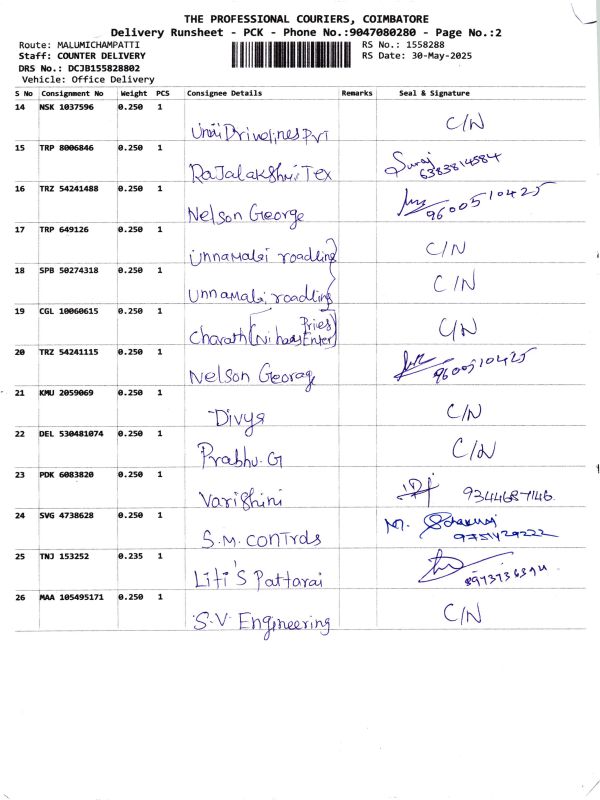 THE PROFESSIONAL COURIERS, COIMBATORE
Delivery Runsheet - PCK - Phone No.:9047080280 - Page No.:2
Route: MALUMICHAMPATTI
RS No.: 1558288
Staff: COUNTER DELIVERY
RS Date: 30-May-2025
DRS No.: DCJB155828802
Vehicle: Office Delivery
S No Consignment No Weight PCS Consignee Details Remarks Seal & Signature
14 NSK 1037596 0.250 1
DrivelinesPVT C/N
15 TRP 8006846 0.250 1
Rajalakshmi Tex Suraj
6383814584
16 TRZ 54241488 0.250 1
Nelson George 9600510425
17 TRP 649126 0.250 1
Unnamalai roadling C/N
18 SPB 50274318 0.250 1
Unnamalai roadling C/N
19 CGL 10060615 0.250 1
Charath C/N
20 TRZ 54241115 0.250 1
Nelson George 9600510425
21 KMU 2059069 0.250 1
Divya C/N
22 DEL 530481074 0.250 1
Prabhu.G C/N
23 PDK 6083820 0.250 1
Varishini 9344687146.
24 SVG 4738628 0.250 1
S.M. controls M.
9751429222
25 TNJ 153252 0.235 1
Liti's Pattarai
26 MAA 105495171 0.250 1
S.V. Engineering C/N